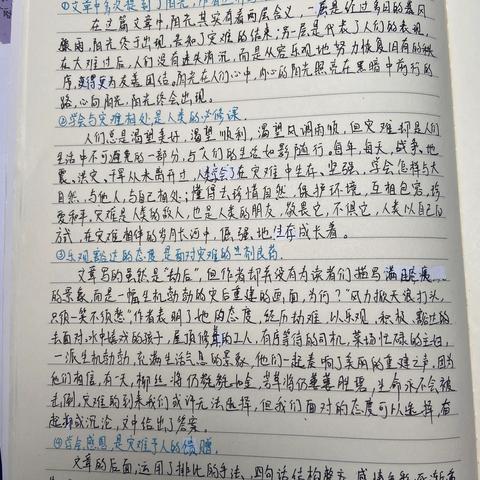 ①文章中多次提到了阳光,
在这篇文章中,阳光其实有着两层含义,一层是经过多日的暴风
骤雨,阳光终于出现,告知了灾难的结束,另一层是代表了人们的表现,
在大难过后,人们没有迷失消沉,而是从容乐观地努力恢复旧有的秩
序,变得更为友善团结。阳光在人们心中,内心的阳光照亮在黑暗中前行的
路,心向阳光,阳光终会出现。
②学会与灾难相处是人类的必修课.
人们总是渴望美好,渴望顺利,渴望风调雨顺,但灾难却是人们
生活中不可避免的一部分,与人们的生活如影随行。每年,每天,战争,地
震,洪灾,干旱从未离开过,人类学会了在灾难中生存,坚强,学会怎样与大
自然,与他人,与自己相处;懂得去珍惜自然,保护环境,互相包容,珍
爱和平,灾难是人类的敌人,也是人类的朋友,敬畏它,不惧它,人类以自己的
方式,在灾难相伴的岁月长河中,倔强地生存成长着。
③乐观豁达的态度是面对灾难的一剂良药.
文章写的虽然是“劫后”,但作者却并没有为读者们描写满眼疮痍
的景象,而是一幅生机勃勃的灾后重建的画面,为何?“风力掀天浪打头,
只须一笑不须愁”作者表明了他的态度,经历劫难,以乐观、积极、豁达的
去面对,水中嬉戏的孩子,屋顶修葺的工人,有序等待的司机,菜场忙碌的主妇,
一派生机勃勃,充满生活气息的景象,他们一起奏响了美丽的重建之声,因
他们相信,有一天,柳丝将仍毵毵如金,芳草将仍萋萋胜碧,生命永不会被
击倒,灾难的到来我们或许无法选择,但我们面对的态度可以选择,奋
起抑或沉沦,文中给出了答案。
④学会感恩是灾难予人的馈赠.
文章的后面,运用了排比的手法,四句话结构整齐,感情